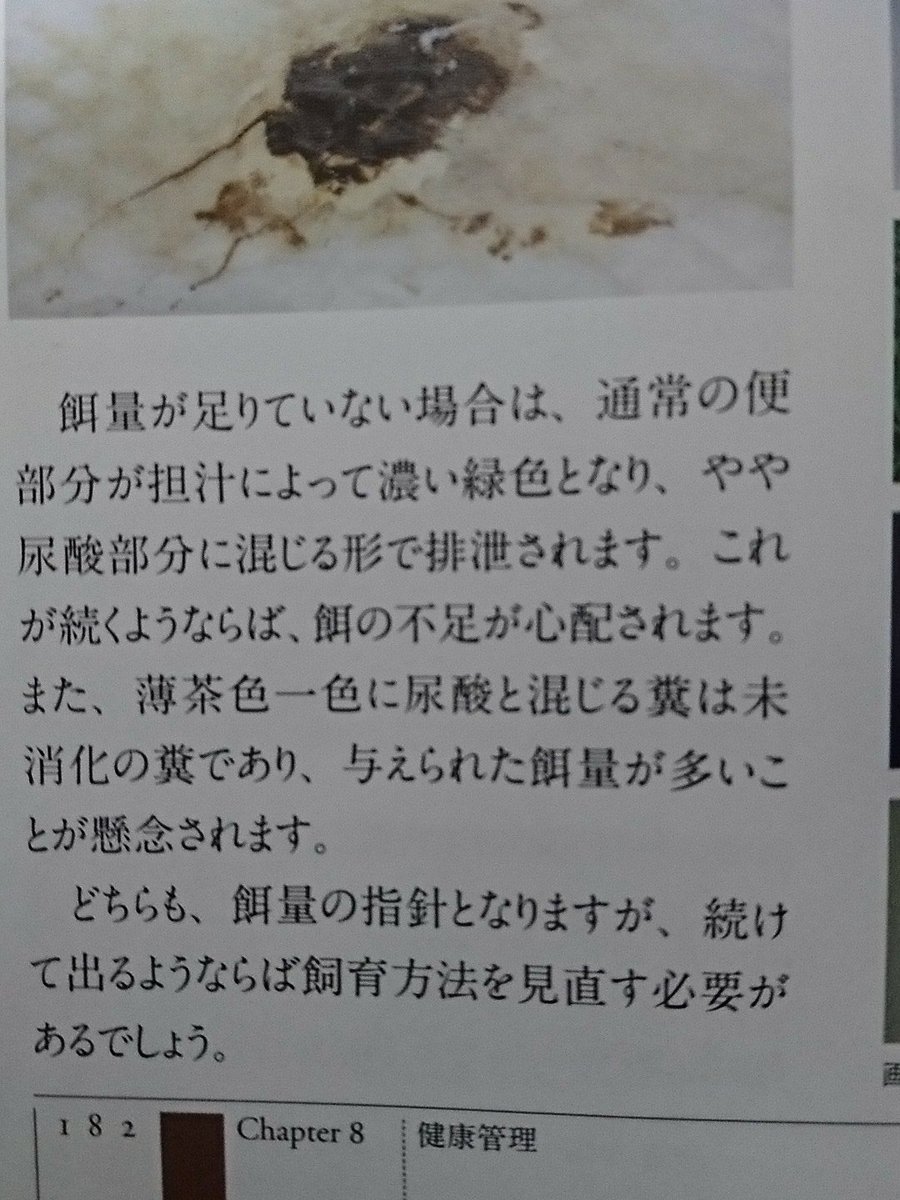 餌量が足りていない場合は、通常の便
部分が担汁によって濃い緑色となり、やや
尿酸部分に混じる形で排泄されます。これ
が続くようならば、餌の不足が心配されます。
また、薄茶色一色に尿酸と混じる糞は未
消化の糞であり、与えられた餌量が多いこ
とが懸念されます。
どちらも、餌量の指針となりますが、続け
て出るようならば飼育方法を見直す必要が
あるでしょう。
182 Chapter 8 健康管理